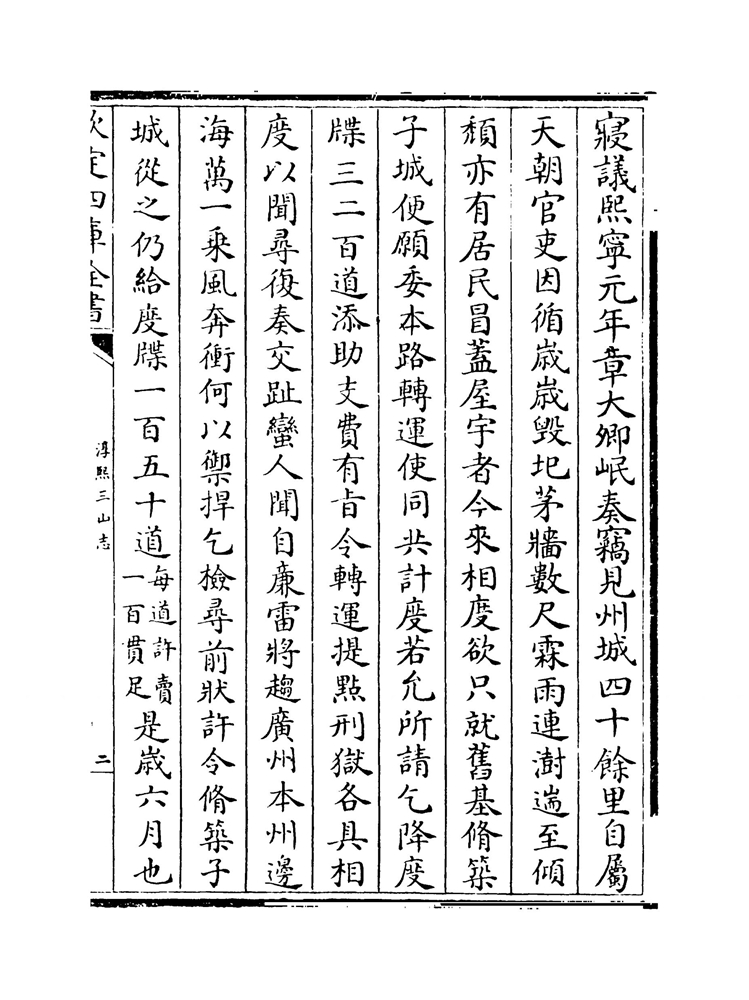 寢議熙寧元年章大卿岷奏竊見州城四十餘里自屬
天朝官吏因循歲歲毀圯茅牆數尺霖雨連澍遄至傾
頹亦有居民冒蓋屋宇者今來相度欲只就舊基脩築
子城便願委本路轉運使同共計度若允所請乞降度
牒三二百道添助支費有旨令轉運提點刑獄各具相
度以聞尋復奏交趾蠻人聞自廉雷將趨廣州本州邊
海萬一乘風奔衝何以禦捍乞檢尋前狀許令脩築子
城從之仍給度牒一百五十道每道許賣一百貫足是歲六月也
欽定四庫全書
淳熙三山志
二